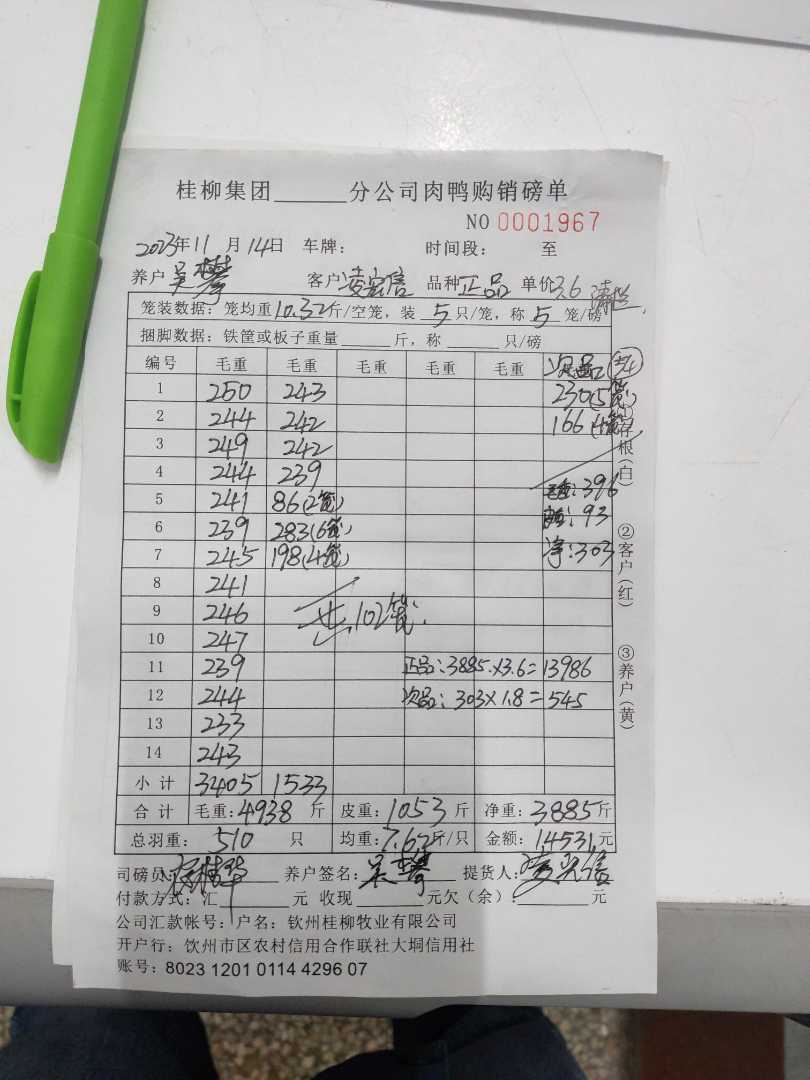 桂柳集团______分公司肉鸭购销磅单
NO 0001967
2023年11月14日 车牌: 时间段: 至
养户 吴攀 客户 凌宏信 品种 正品 单价 3.6
笼装数据: 笼均重10.32斤/空笼, 装5只/笼, 称5笼/磅
捆脚数据: 铁筐或板子重量______斤, 称______只/磅
编号 毛重 毛重 毛重 毛重 毛重 次品
1 250 243 230(5笼)
2 244 242 166(4笼)
3 249 242
4 244 239 毛重:396
5 241 86(2笼) 皮重:93
6 239 283(6笼)
7 245 198(4笼) 净:303
8 241
9 246 共102笼.
10 247
11 239 正品:3885×3.6=13986
12 244 次品:303×1.8=545
13 233
14 243
小计 3405 1533
合计 毛重:4938斤 皮重:1053斤 净重:3885斤
总羽重: 510 只 均重:7.62斤/只 金额:14531元
司磅员: 养户签名: 吴攀 提货人: 凌宏信
付款方式: 汇______元 收现______元欠(余):______元
公司汇款帐号: 户名: 钦州桂柳牧业有限公司
开户行: 钦州市区农村信用合作联社大垌信用社
账号: 8023 1201 0114 4296 07
①存根(白)
②客户(红)
③养户(黄)